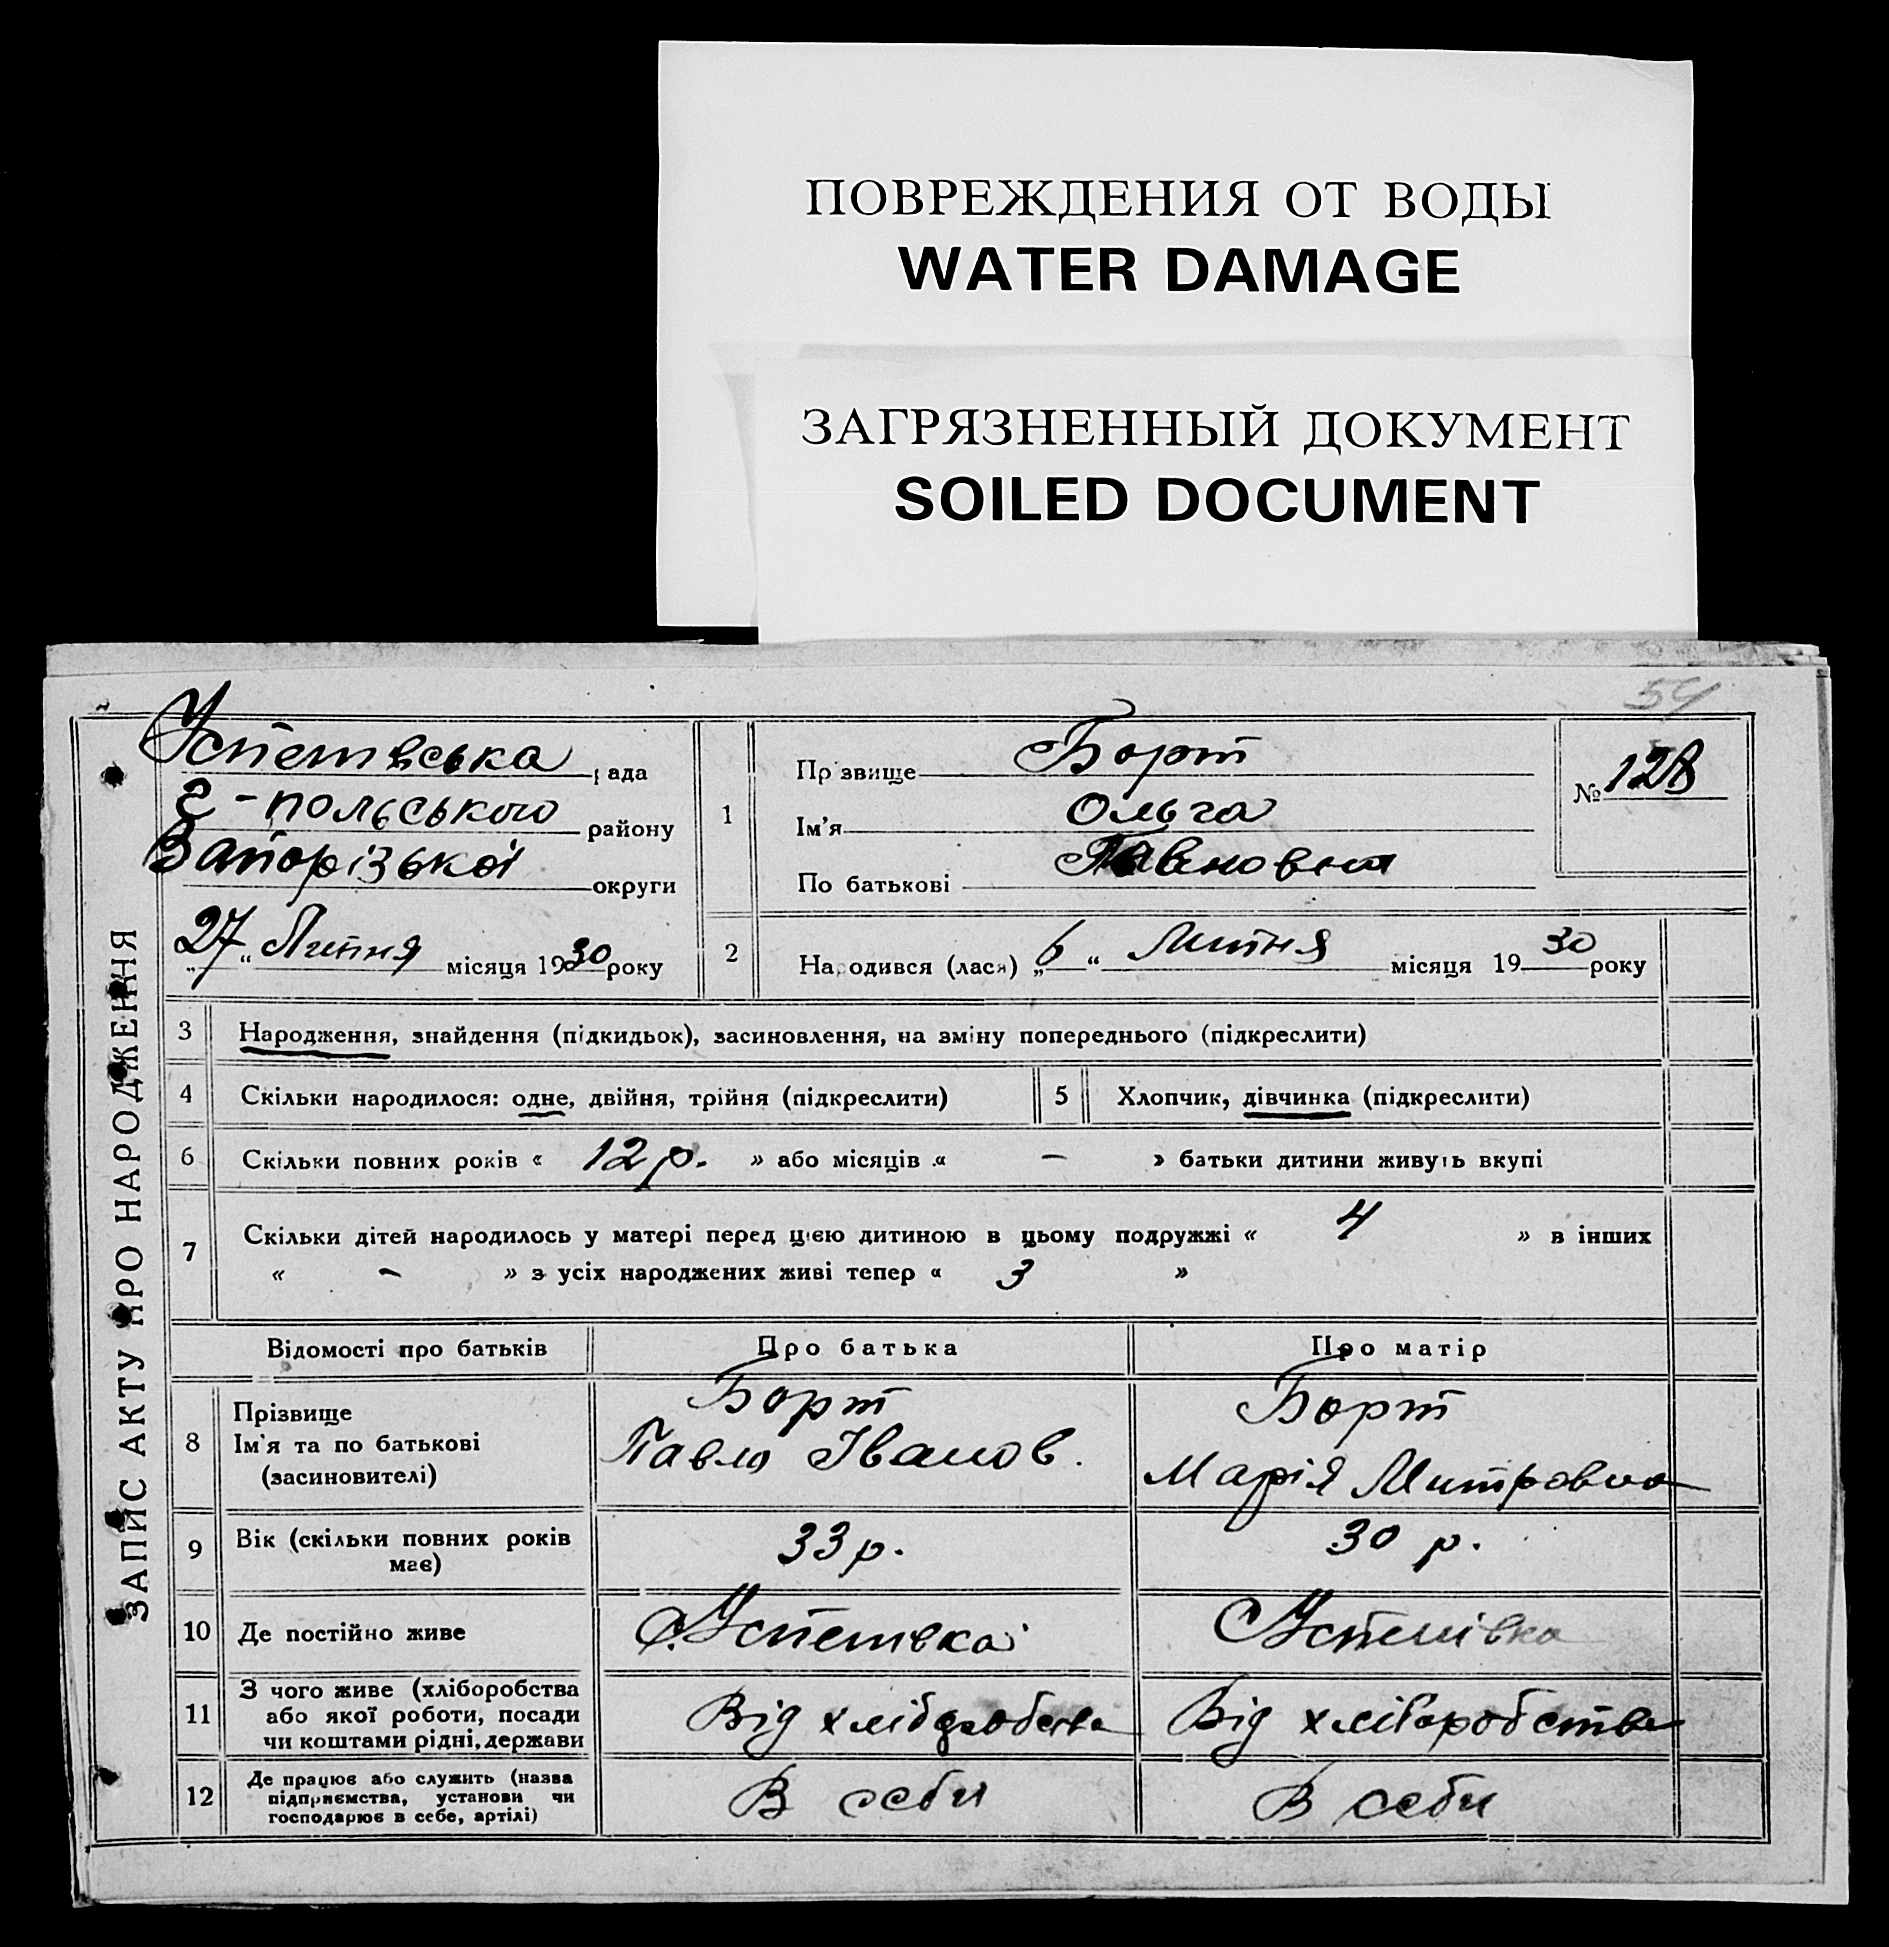 ПОВРЕЖДЕНИЯ ОТ ВОДЫ
WATER DAMAGE
ЗАГРЯЗНЕННЫЙ ДОКУМЕНТ
SOILED DOCUMENT
54
ЗАПИС АКТУ ПРО НАРОДЖЕННЯ
Успенівська рада
С-польського району
Запорізької округи
„27“ Липня місяця 1930 року
1
Прізвище Борт
Ім'я Ольга
По батькові Павловна
№ 128
2 Народився (лася) „6“ Липня місяця 1930 року
3 Народження, знайдення (підкидьок), засиновлення, на зміну попереднього (підкреслити)
4 Скільки народилося: одне, двійня, трійня (підкреслити) 5 Хлопчик, дівчинка (підкреслити)
6 Скільки повних років « 12 р. » або місяців « – » батьки дитини живуть вкупі
7 Скільки дітей народилось у матері перед цією дитиною в цьому подружжі « 4 » в інших
« – » з усіх народжених живі тепер « 3 »
Відомості про батьків Про батька Про матір
8 Прізвище Борт Борт
Ім'я та по батькові Павло Іванов. Марія Митровна
(засиновителі)
9 Вік (скільки повних років має) 33 р. 30 р.
10 Де постійно живе С. Успенівка С Успенівка
11 З чого живе (хліборобства Від хліборобства Від хліборобства
або якої роботи, посади
чи коштами рідні, держави
12 Де працює або служить (назва В себи В себи
підприємства, установи чи
господарює в себе, артілі)